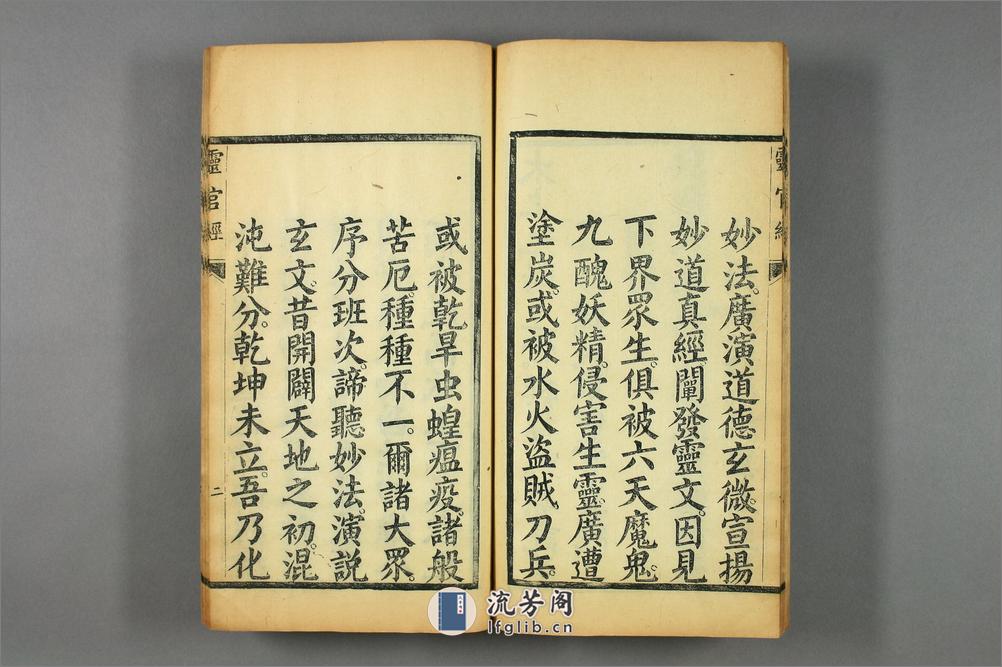 妙法。廣演道德玄微。宣揚
妙道真經。闡發靈文。因見
下界眾生。俱被六天魔鬼。
九醜妖精。侵害生靈。廣遭
塗炭。或被水火盜賊。刀兵。
靈官經
或被乾旱虫蝗瘟疫。諸般
苦厄。種種不一。爾諸大眾。
序分班次。諦聽妙法。演說
玄文。昔開闢天地之初。混
沌難分。乾坤未立。吾乃化
靈官經
二
流芳阁
lfglib.cn